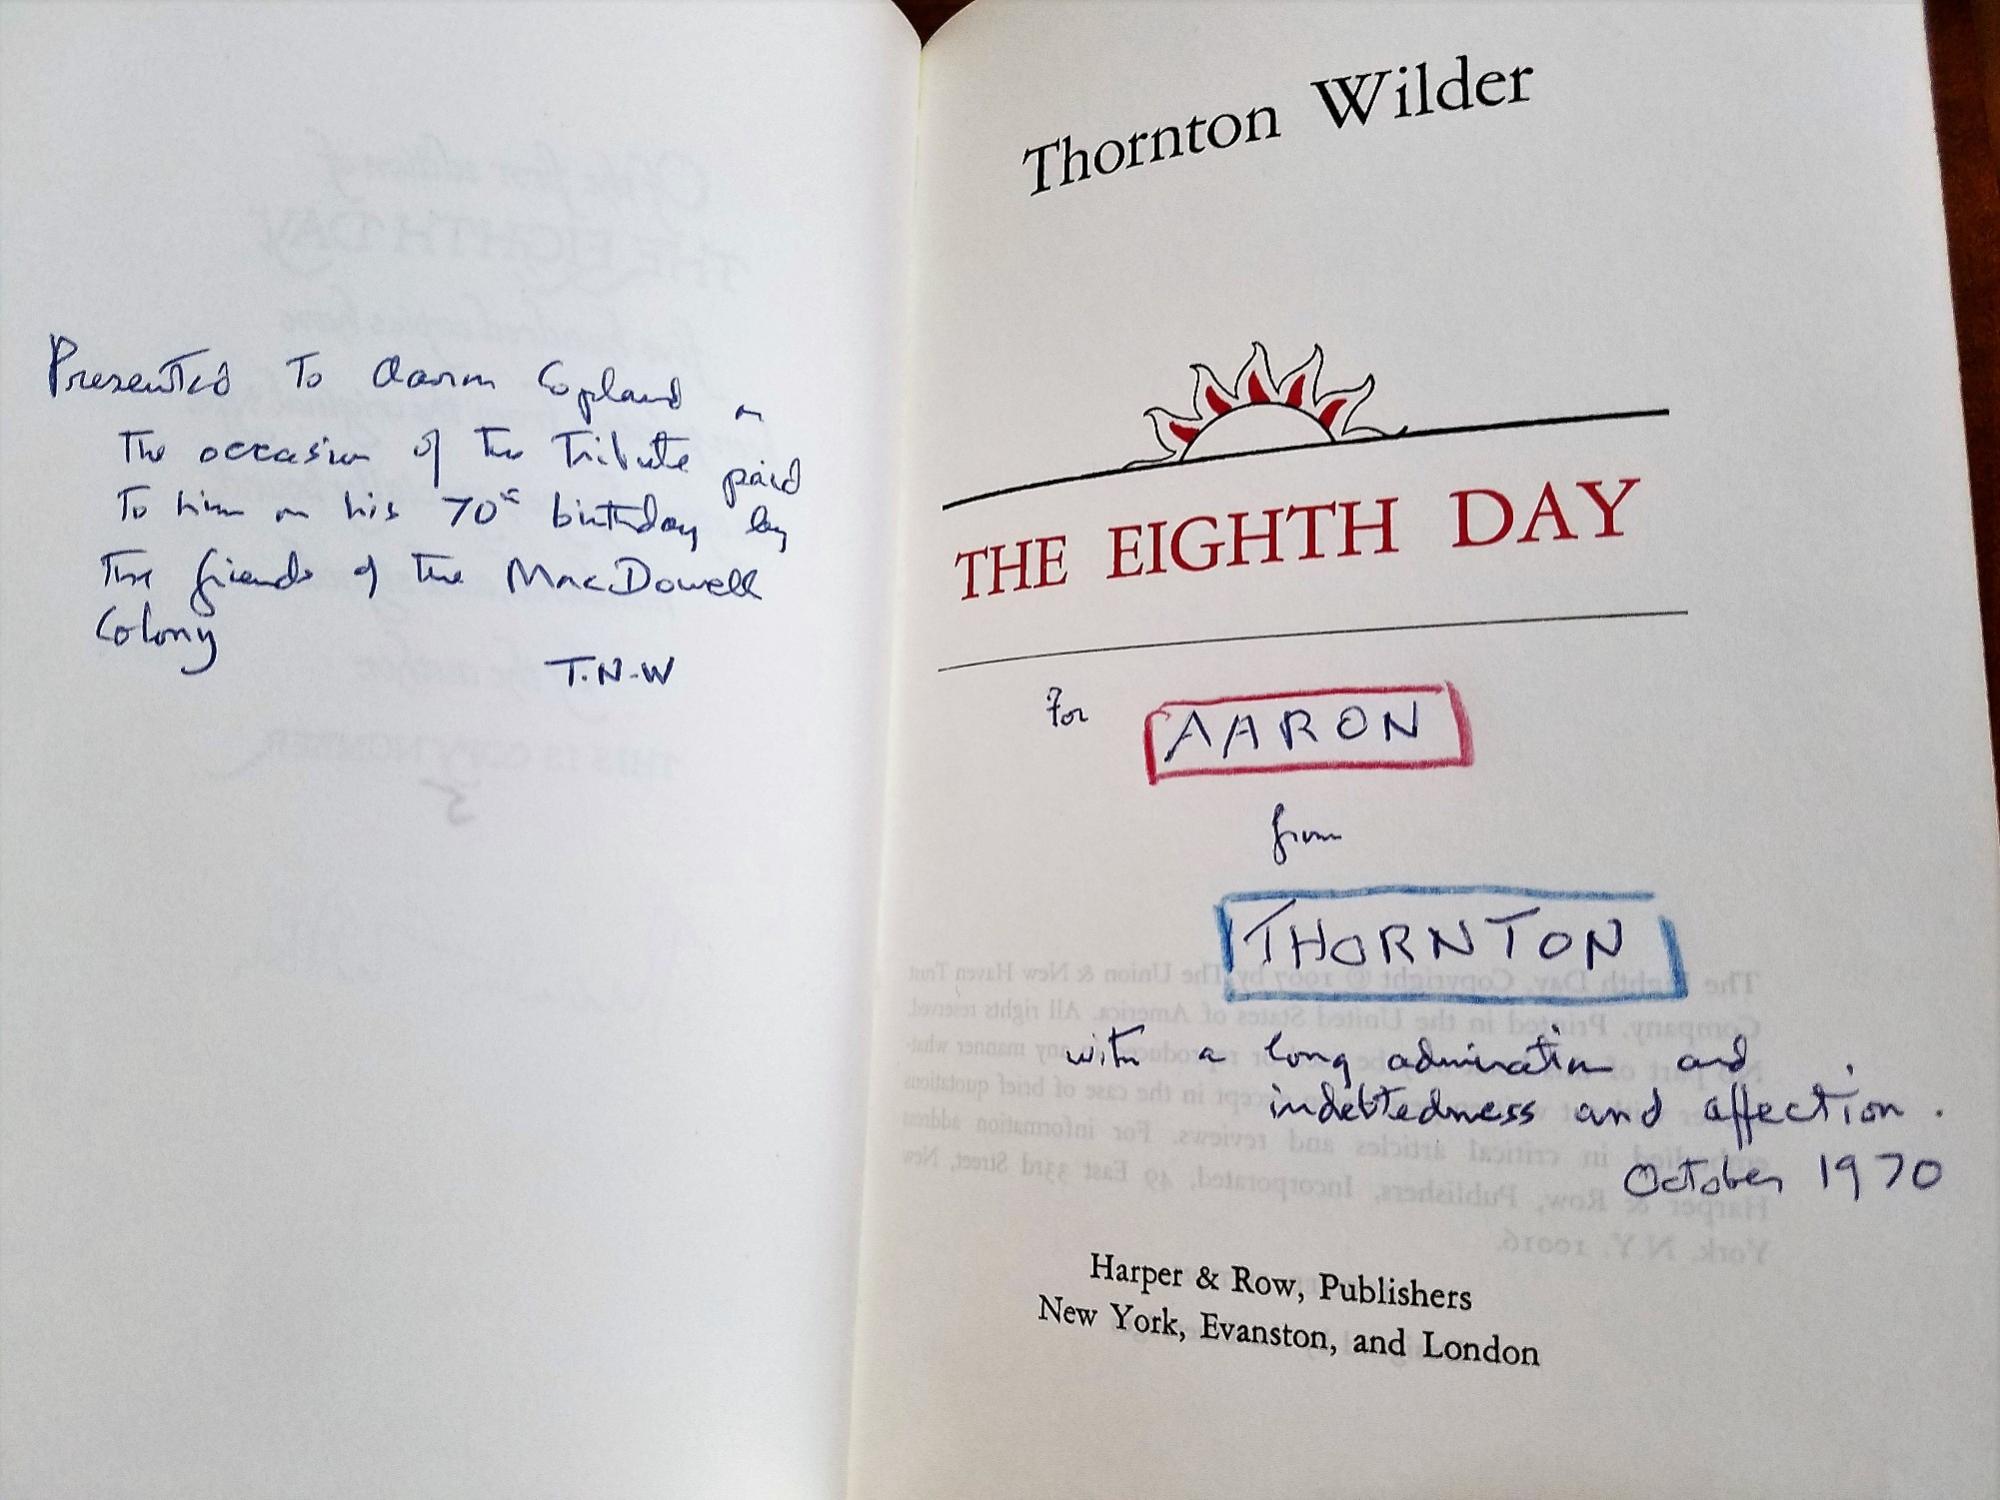 Presented To Aaron Copland on
The occasion of the Tribute paid
To him on his 70th birthday by
The friends of the MacDowell
Colony
T.N.W
Thornton Wilder
THE EIGHTH DAY
For AARON
from
THORNTON
with a long admiration and
indebtedness and affection.
October 1970
Harper & Row, Publishers
New York, Evanston, and London